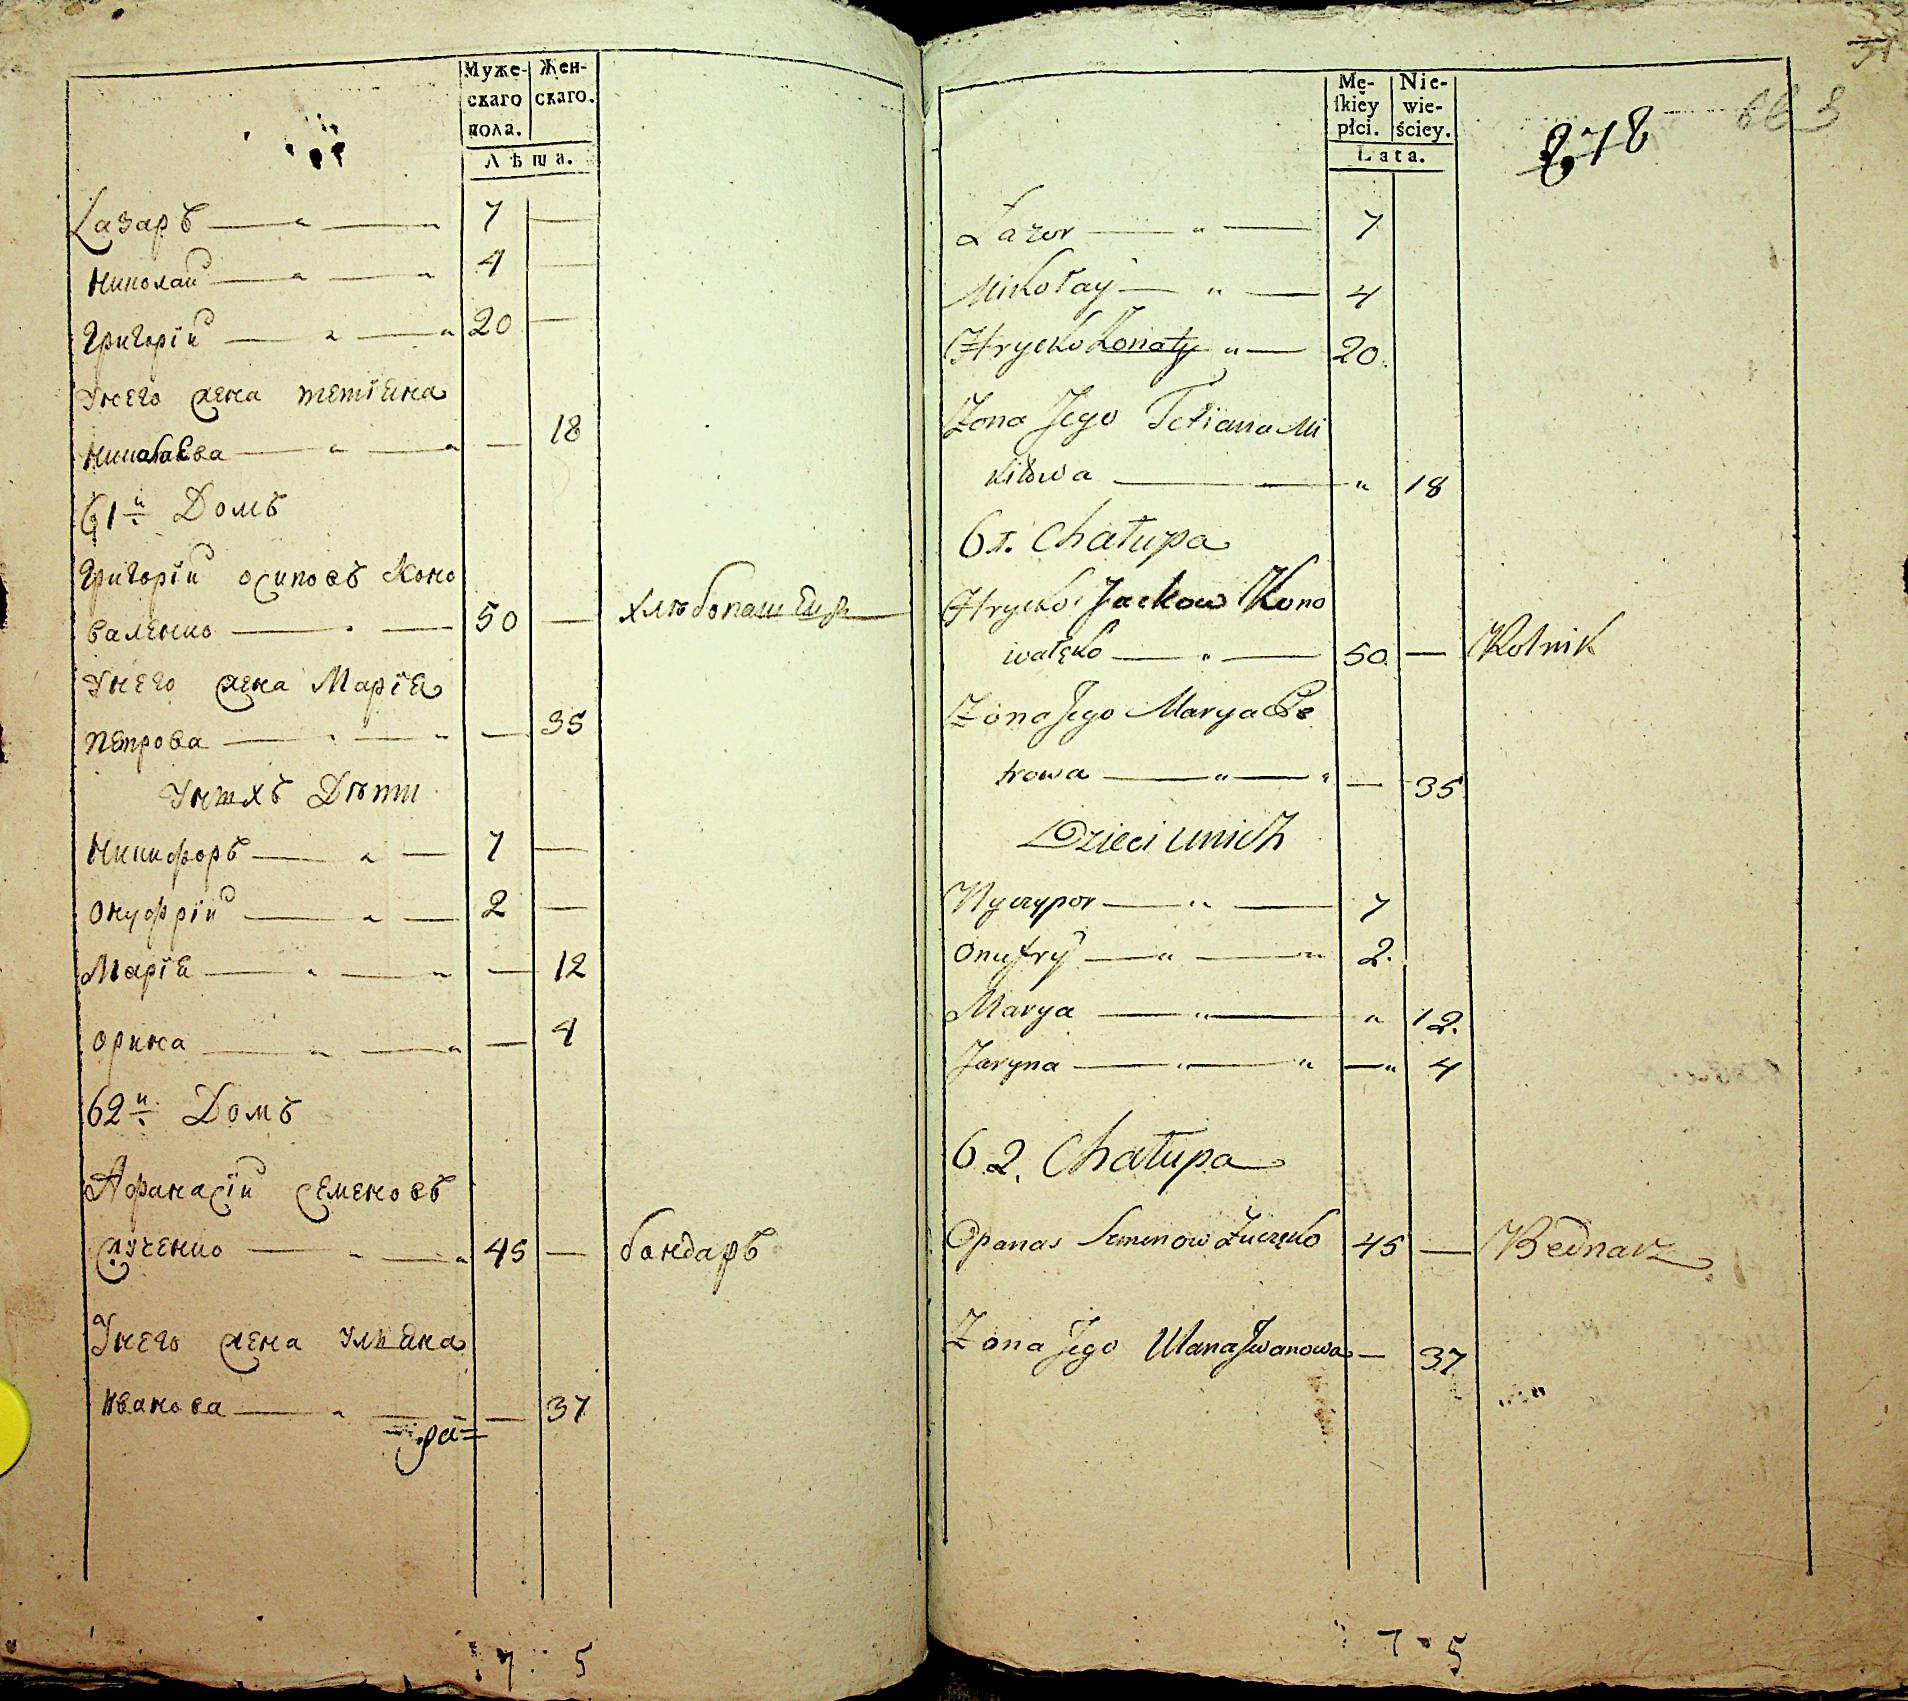 Муже- Жен-
скаго скаго.
пола.
Лѣта.
Лазаръ 7 —
Николай 4 —
Григорїй 20 —
Унего жена тетїяна
— 18
61й Домъ
Григорїй осиповъ Коно
валенко 50 — хлѣбопашецъ
Унего жена Марїя
петрова — 35
Унихъ Дѣти
Никифоръ 7 —
Онуфрїй 2 —
Марїя — 12
орина — 4
62й Домъ
Афанасїй семеновъ
лученко 45 — бондарь
Унего жена ульяна
иванова — 37
7 5
Mę- Nie-
ſkiéy wie-
płci. ściey.
Lata.
278
663
Łazor 7
Mikołay 4
Hrycko 20
Zona Jego Tetiana Mi
kitowa " 18
61. Chałupa
Hrycko Jackow Kono
wałęko 50 — Rolnik
Zona Jego Marya Pe
trowa — 35
Dzieci unich
Nyczypor 7
Onufry 2.
Marya " 12.
Jaryna — 4
62. Chałupa
Opanas Semenow Łuczęko 45 — Bednarz
Zona Jego Ulana Jwanowa — 37
7 5